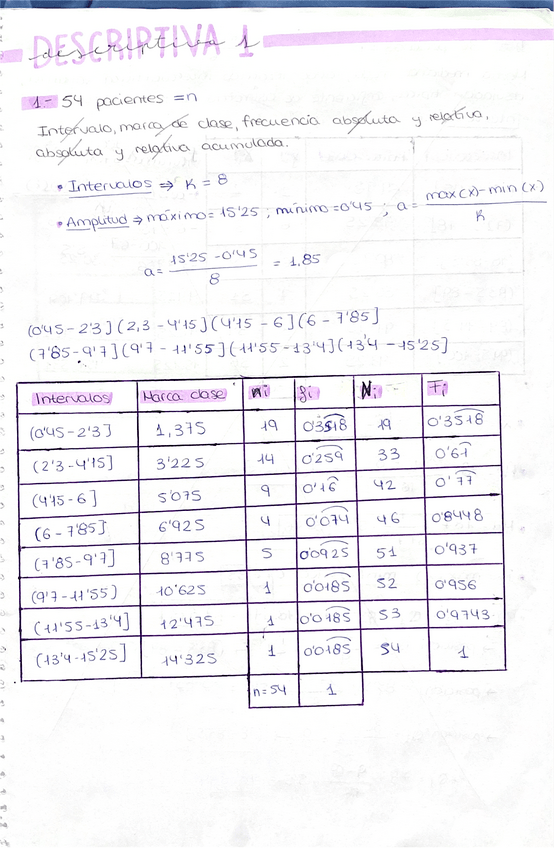 DESCRIPTIVA 1
descriptiva 1
1- 54 pacientes =n
Intervalo, marca de clase, frecuencia absoluta y relativa,
absoluta y relativa acumulada.
• Intervalos ⇒ K = 8
• Amplitud ⇒ máximo = 15'25 ; mínimo = 0'45 ; a = max(x) - min(x) / K
a = 15'25 - 0'45 / 8 = 1,85
(0'45 - 2'3] (2,3 - 4'15] (4'15 - 6] (6 - 7'85]
(7'85 - 9'7] (9'7 - 11'55] (11'55 - 13'4] (13'4 - 15'25]
Intervalos Marca clase ni fi Ni Fi
(0'45 - 2'3] 1,375 19 0'3518 19 0'3518
(2'3 - 4'15] 3'225 14 0'259 33 0'61
(4'15 - 6] 5'075 9 0'16 42 0'77
(6 - 7'85] 6'925 4 0'074 46 0'8448
(7'85 - 9'7] 8'775 5 0'0925 51 0'937
(9'7 - 11'55) 10'625 1 0'0185 52 0'956
(11'55 - 13'4] 12'475 1 0'0185 53 0'9743
(13'4 - 15'25] 14'325 1 0'0185 54 1
n=54 1